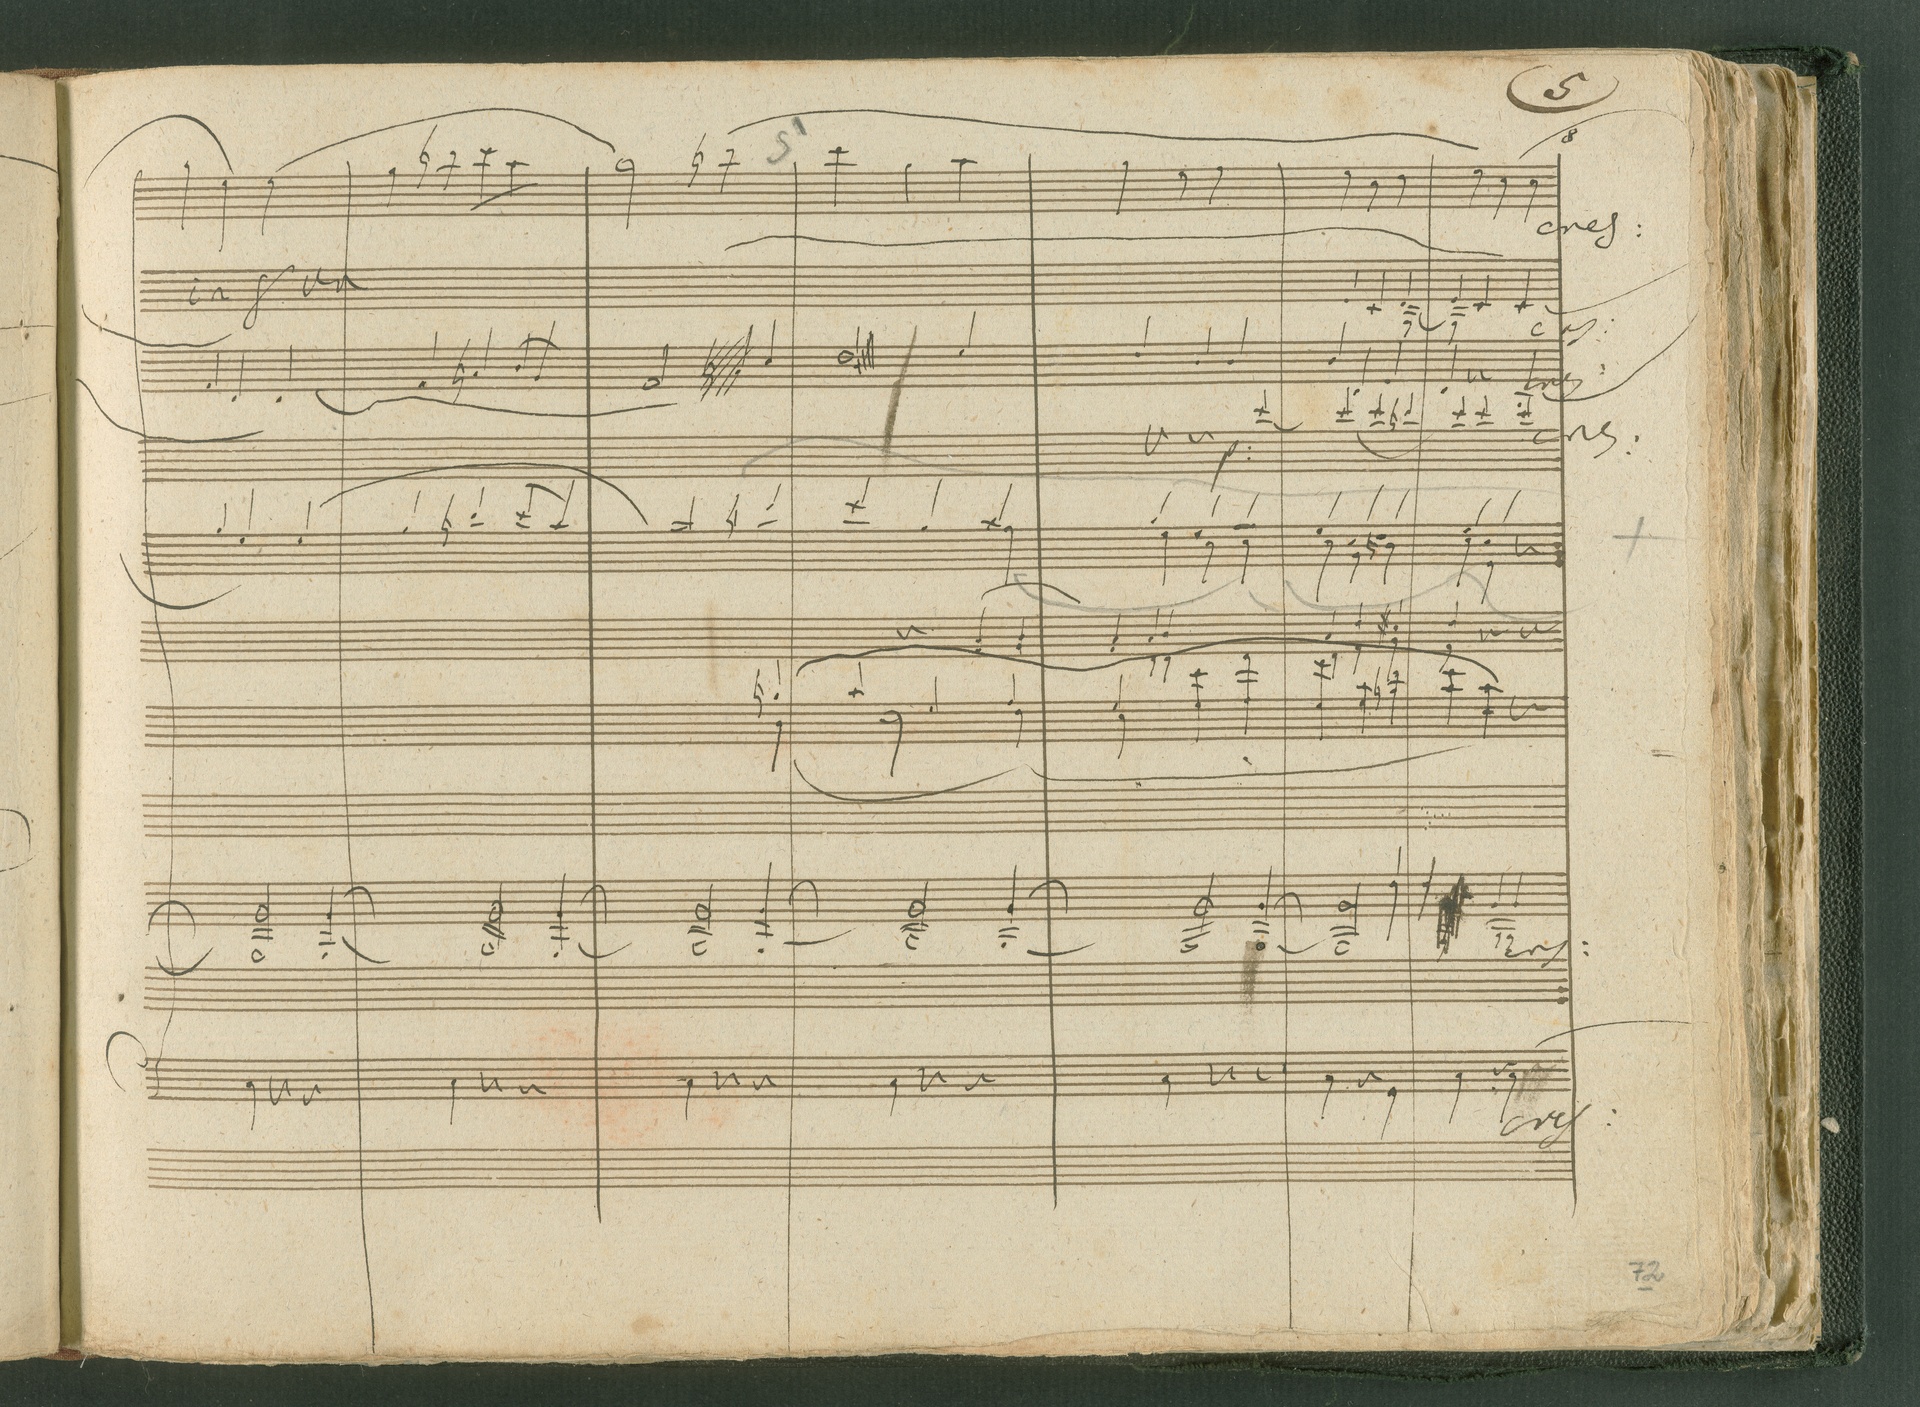 5
8
5
cres:
in 8va
cres:
cres:
p:
cres:
cres:
cres:
72